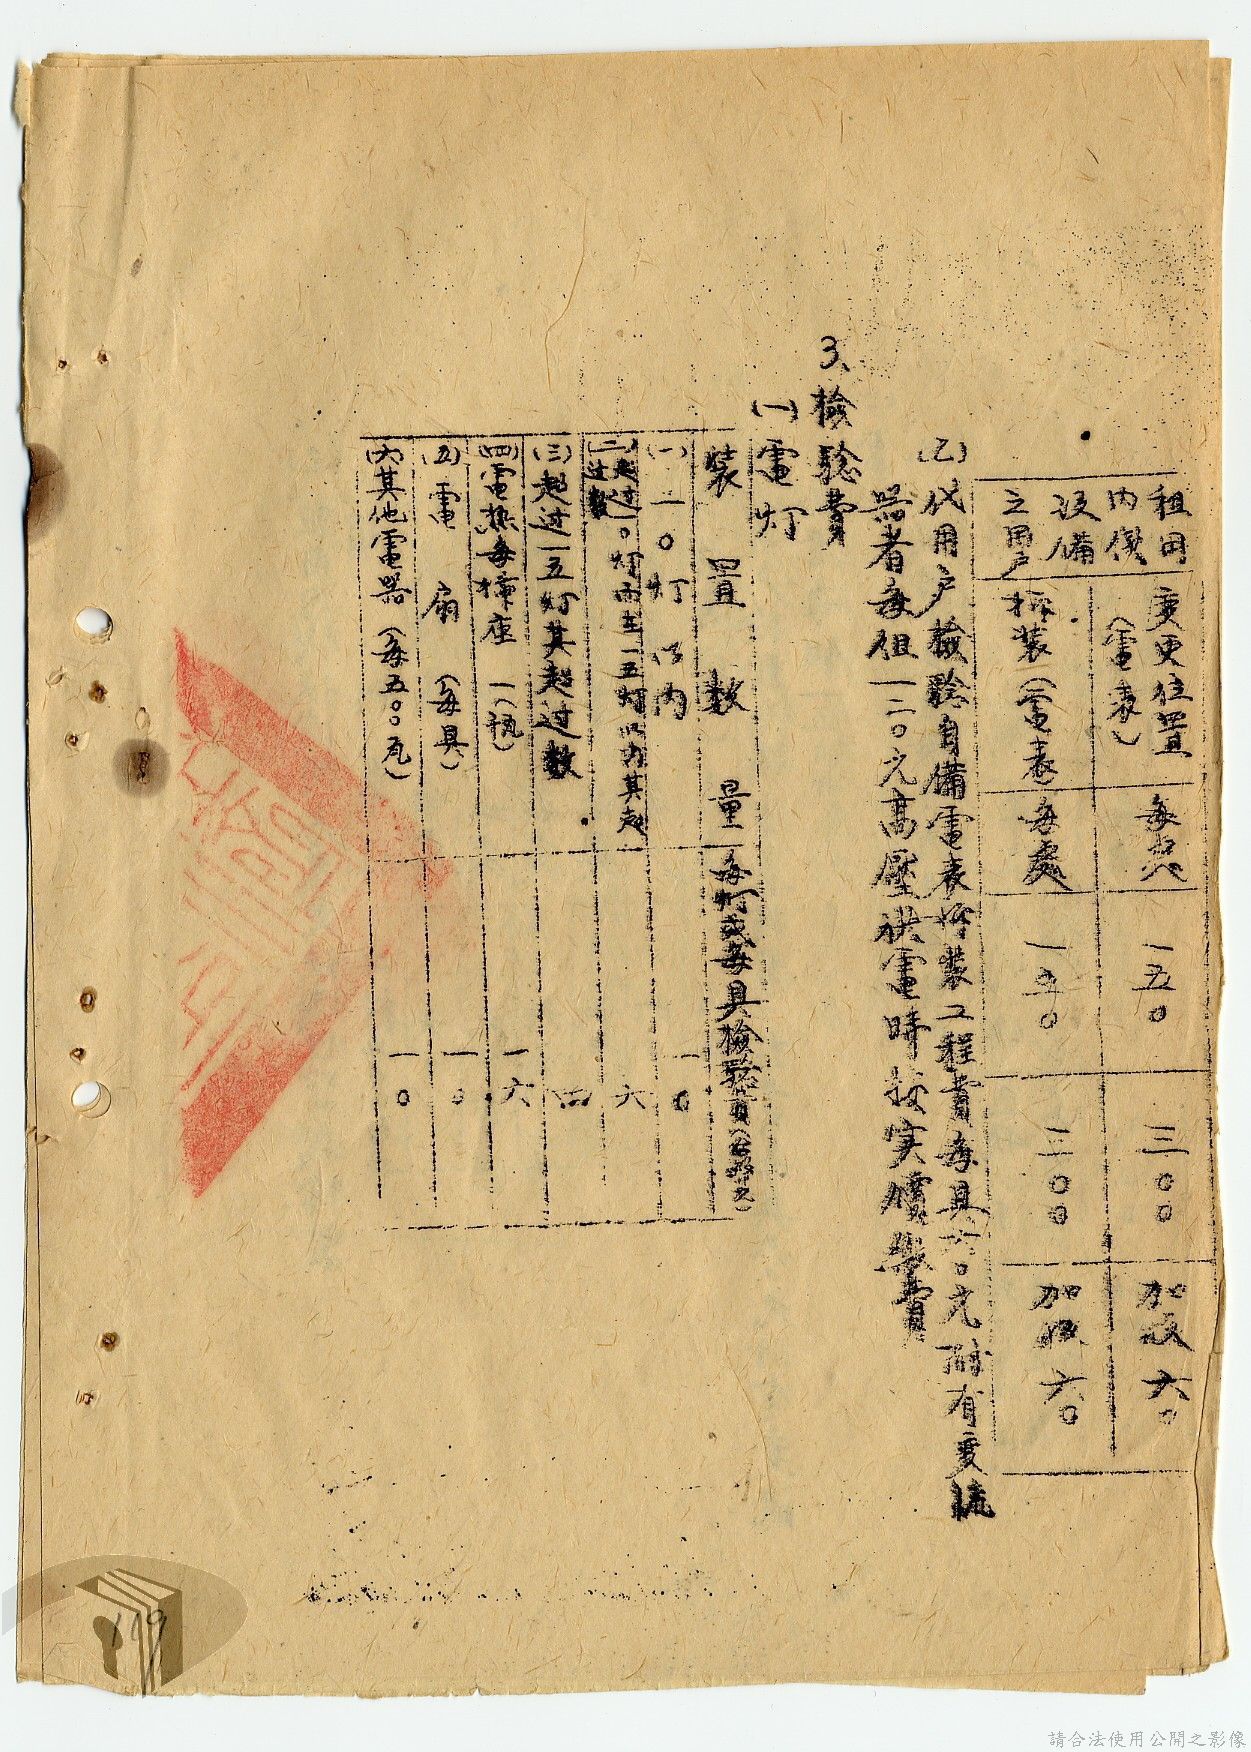 租用
內線
設備
之用戶
變更位置
(電表)
每處
一五〇
三〇〇
加收六〇
拆裝(電表)
每處
一五〇
三〇〇
加收六〇
(乙)代用户檢驗自備電表所裝工程費每具六〇元附有变流
器者每组一二〇元高壓供電時按实價繳費
3、檢驗費
(一)電灯
裝置數量
每灯或每具檢驗費
(一)一〇灯以內
一〇
(二)超过一〇灯而至一五灯以內其超
过数
六
(三)超过一五灯其超过數
四
(四)電热每揷座
一六
(五)電扇(每具)
一〇
(六)其他電器(每五〇〇瓦)
一〇
119
請合法使用公開之影像